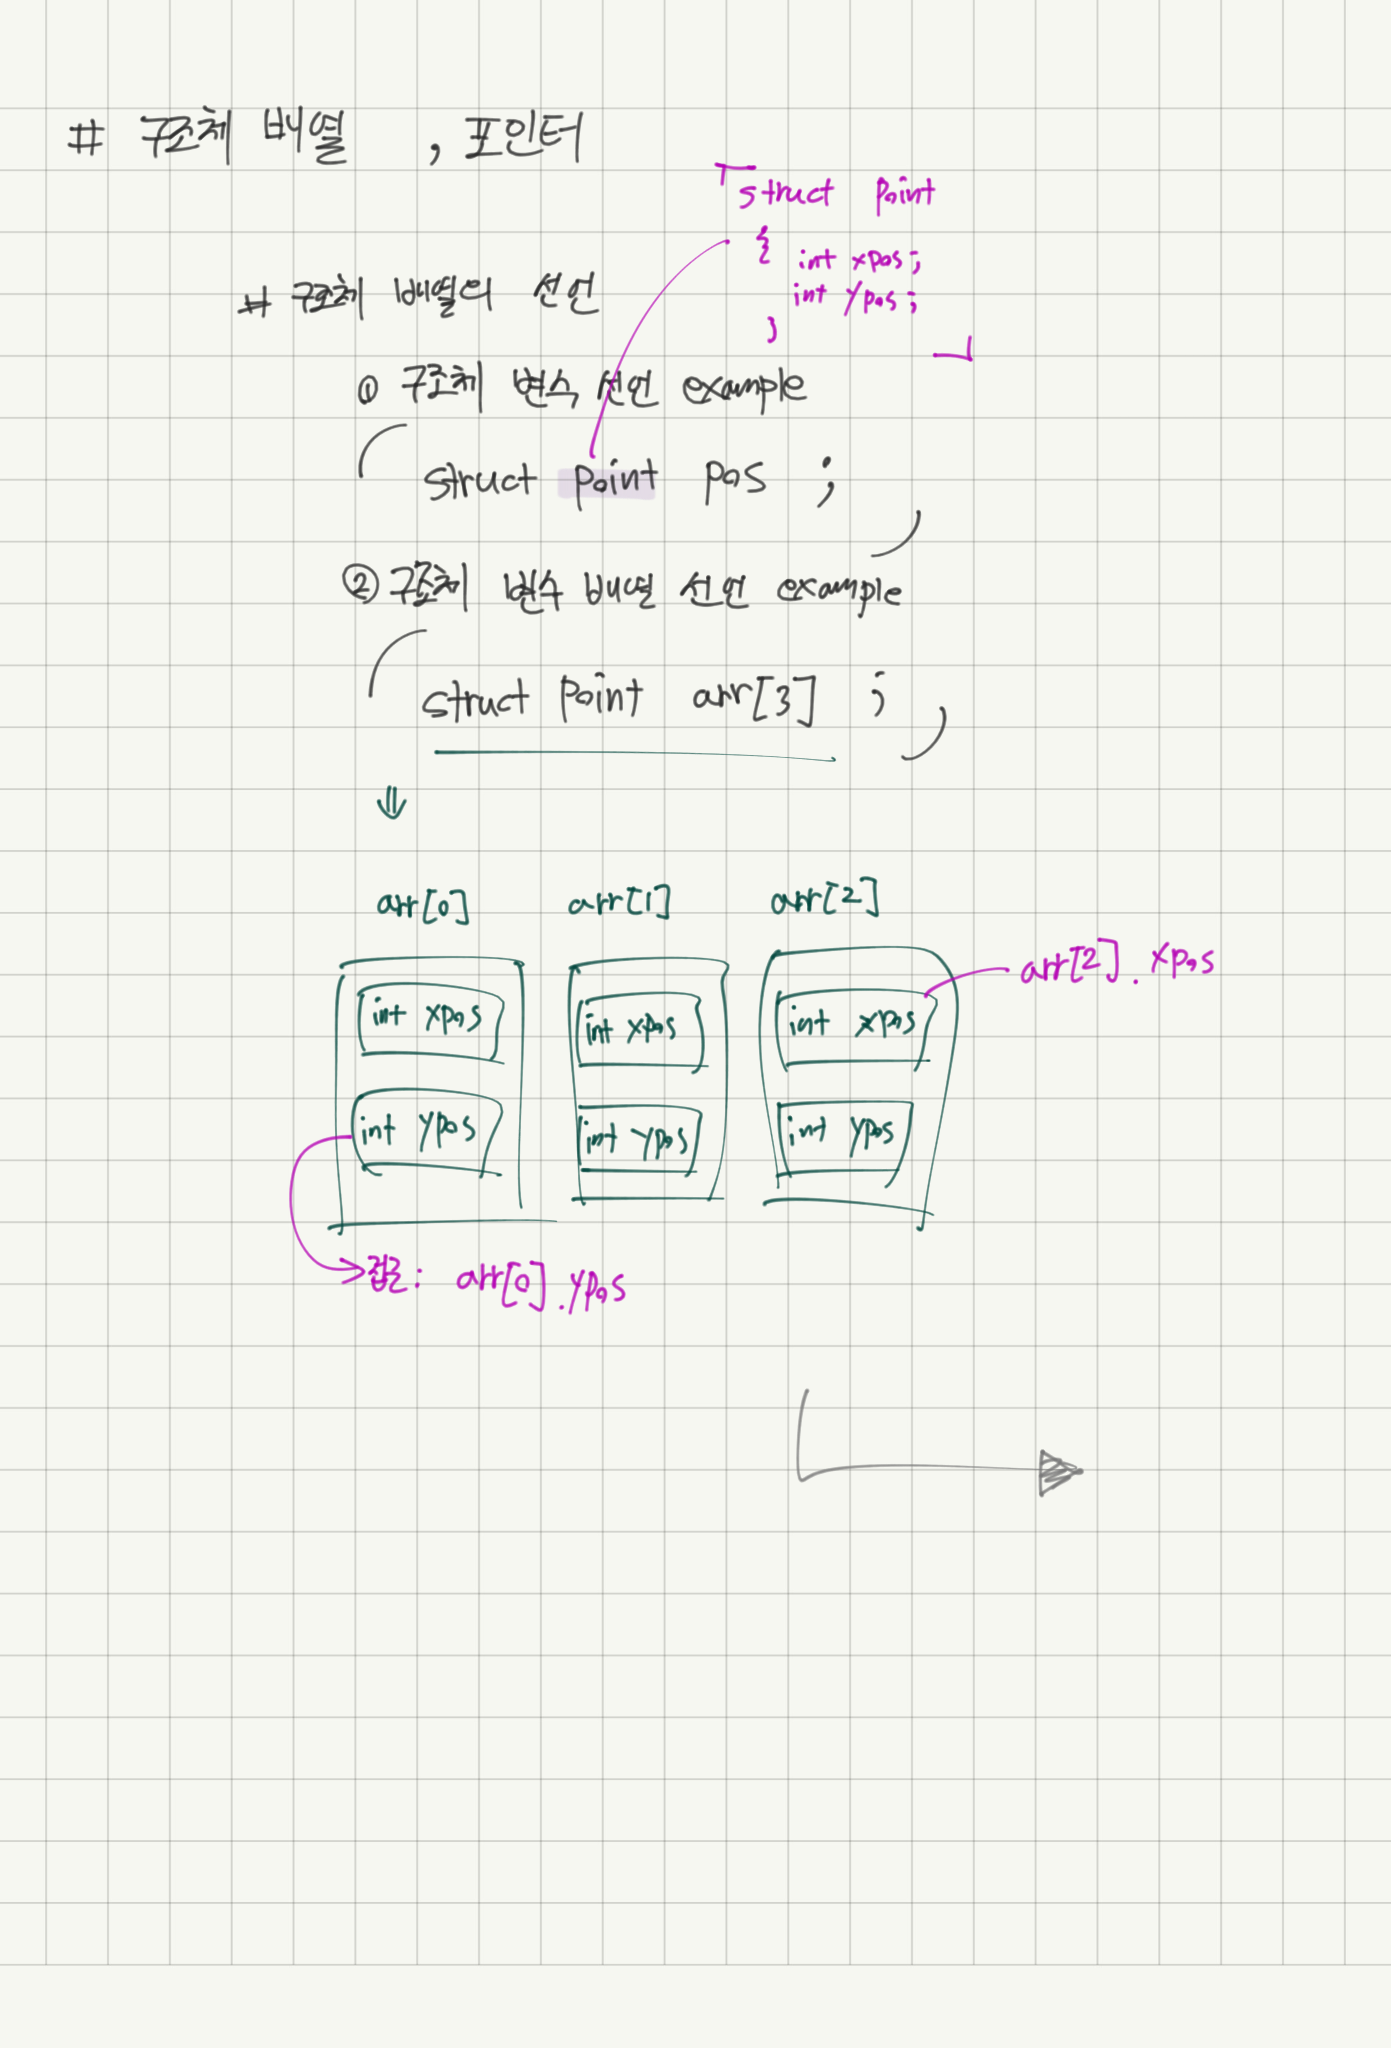 # 구조체 배열 , 포인터
struct point
{ int xpos;
int ypos;
}
# 구조체 배열의 선언
① 구조체 변수 선언 example
struct point pos ;
② 구조체 변수 배열 선언 example
struct point arr[3] ;
arr[0] arr[1] arr[2]
arr[2]. xpos
int xpos int xpos int xpos
int ypos int ypos int ypos
접근: arr[0].ypos